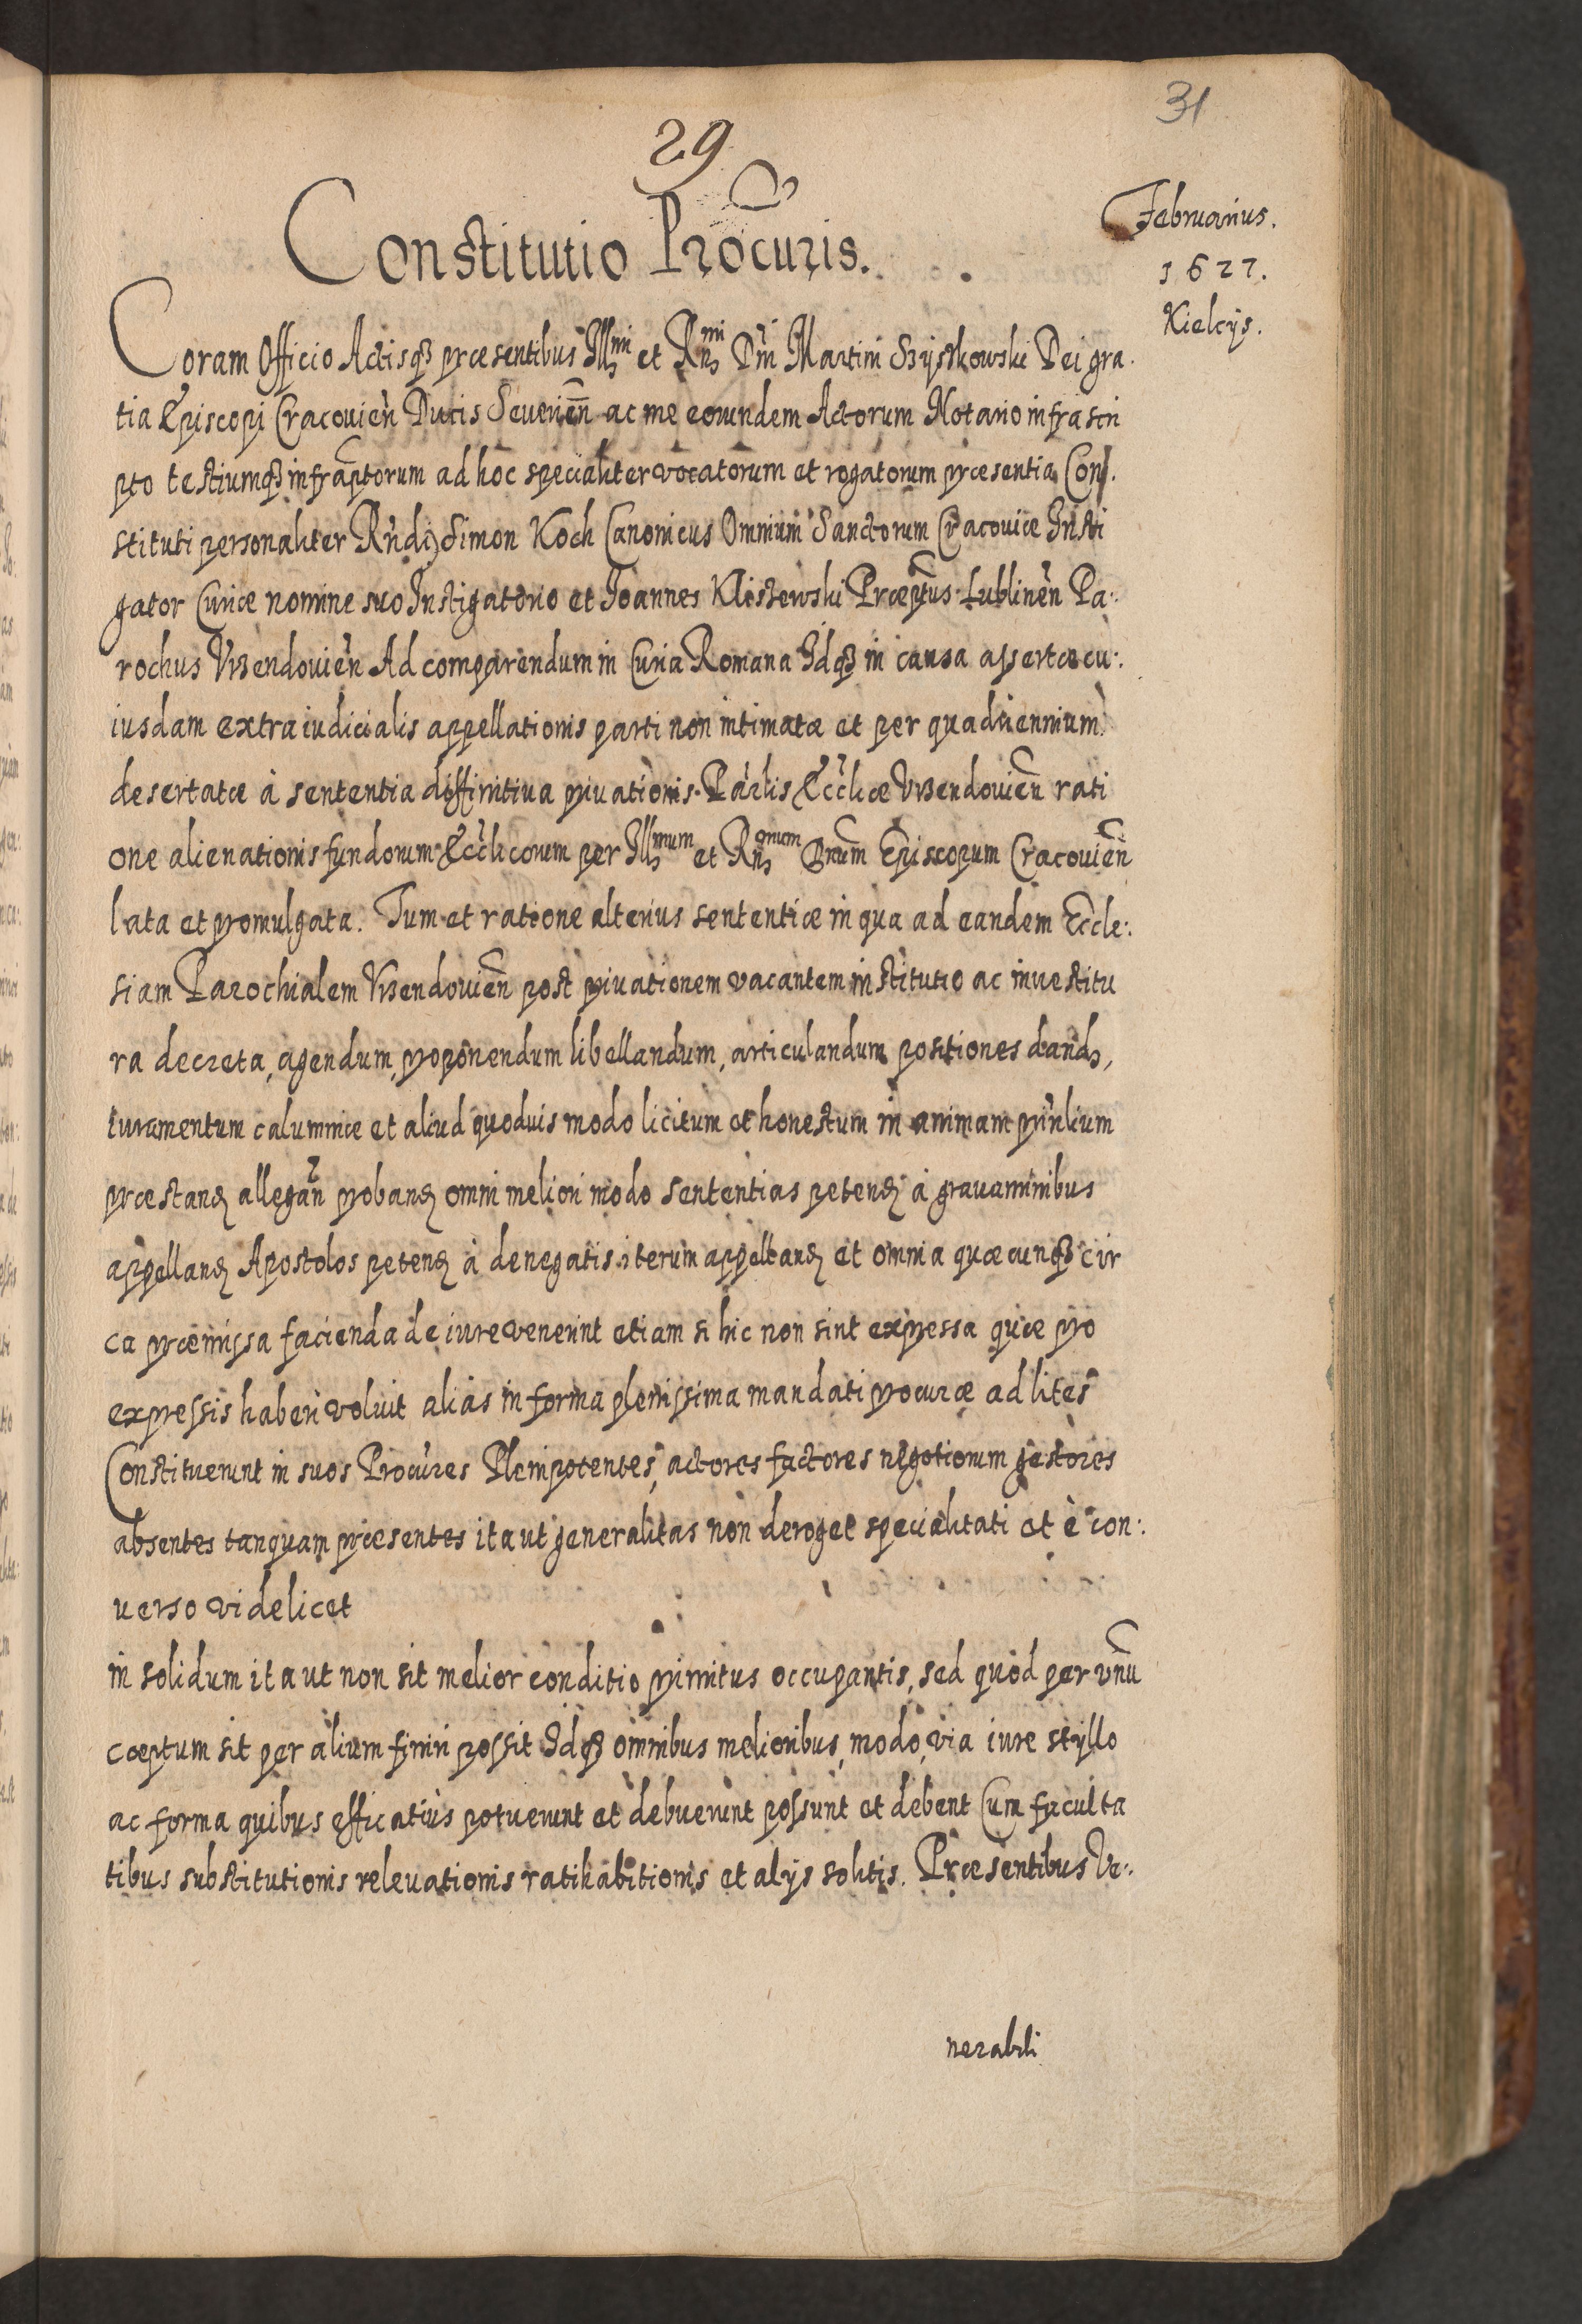 31
29
Februarius.
1622.
Kielcÿs.
Constitutio Procuris.
Coram Officio Actisq₃ præsentibus Ill^mi et R^mi Dni Martini Szÿszkowski Dei gra
tia Episcopi Cracovień Ducis Severień ac me eorundem Actorum Notario infra scri
pto testiumq₃ infraptorum ad hoc specialiter vocatorum et rogatorum præsentia Con
stituti personaliter Rńdi Simon Koch Canonicus Omnium Sanctorum Cracoviæ Insti
gator Curiæ nomine suo Instigatorio et Ioannes Præptus Lublineń Pa:
rochus Vrzendovień Ad comparendum in Curia Romana Idq₃ in causa assertæ cu:
iusdam extraiudicialis appellationis parti non intimatæ et per quadriennium
desertatæ à sententia diffinitiva privationis Parlis Ecclicæ Vrzendovień rati
one alienationis fundorum Ecclicorum per Ill^mum et R^mum Dnum Episcopum Cracovień
lata et promulgata. Tum et ratione alterius sententiæ in qua ad eandem Eccle:
siam Parochialem Vrzendovień post privationem vacantem institutio ac investitu
ra decreta, agendum, proponendum libellandum, articulandum positiones dand,
iuramentum calumniæ et aliud quodvis modo licitum et honestum in animam prinlium
præstand allegań proband omni meliori modo sententias petend à gravaminibus
appelland Apostolos petend à denegatis iterum appelland et omnia quæcunq₃ cir
ca præmissa facienda de iure venerint etiam si hic non sint expressa quæ pro
expressis haberi voluit aliàs in forma plenissima mandati procuræ ad lites
Constituerunt in suos Procures Plenipotentes, actores factores negotiorum gestores
absentes tanquam præsentes ita ut generalitas non deroget specialitati et è con:
verso videlicet
in solidum ita ut non sit melior conditio primitus occupantis, sed quod per vnu
cæptum sit per alium finiri possit Idq₃ omnibus melioribus, modo, via iure stÿllo
ac forma quibus efficatiùs potuerunt et debuerunt possunt et debent Cum faculta
tibus substitutionis relevationis ratihabitionis et alÿs solitis. Præsentibus Ve:
nerabili